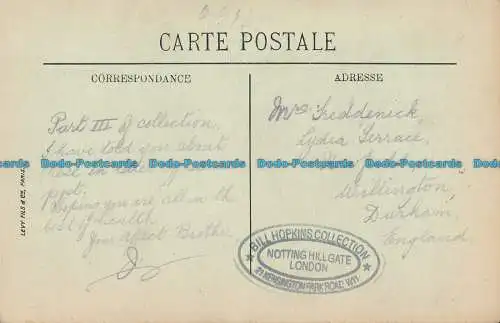 CARTE POSTALE
CORRESPONDANCE
ADRESSE
Part III of collection.
I have told you about
in
post.
Hoping you are all in the
best of health
Your affect Brother
Mrs Freddenick,
Lydia Terrace,
Willington,
Durham,
England.
LEVY FILS & Cie, PARIS
BILL HOPKINS COLLECTION
NOTTING HILL GATE
LONDON
21 KENSINGTON PARK ROAD. W11
Postcards Postcards Postcards Postcards Postcards Postcards